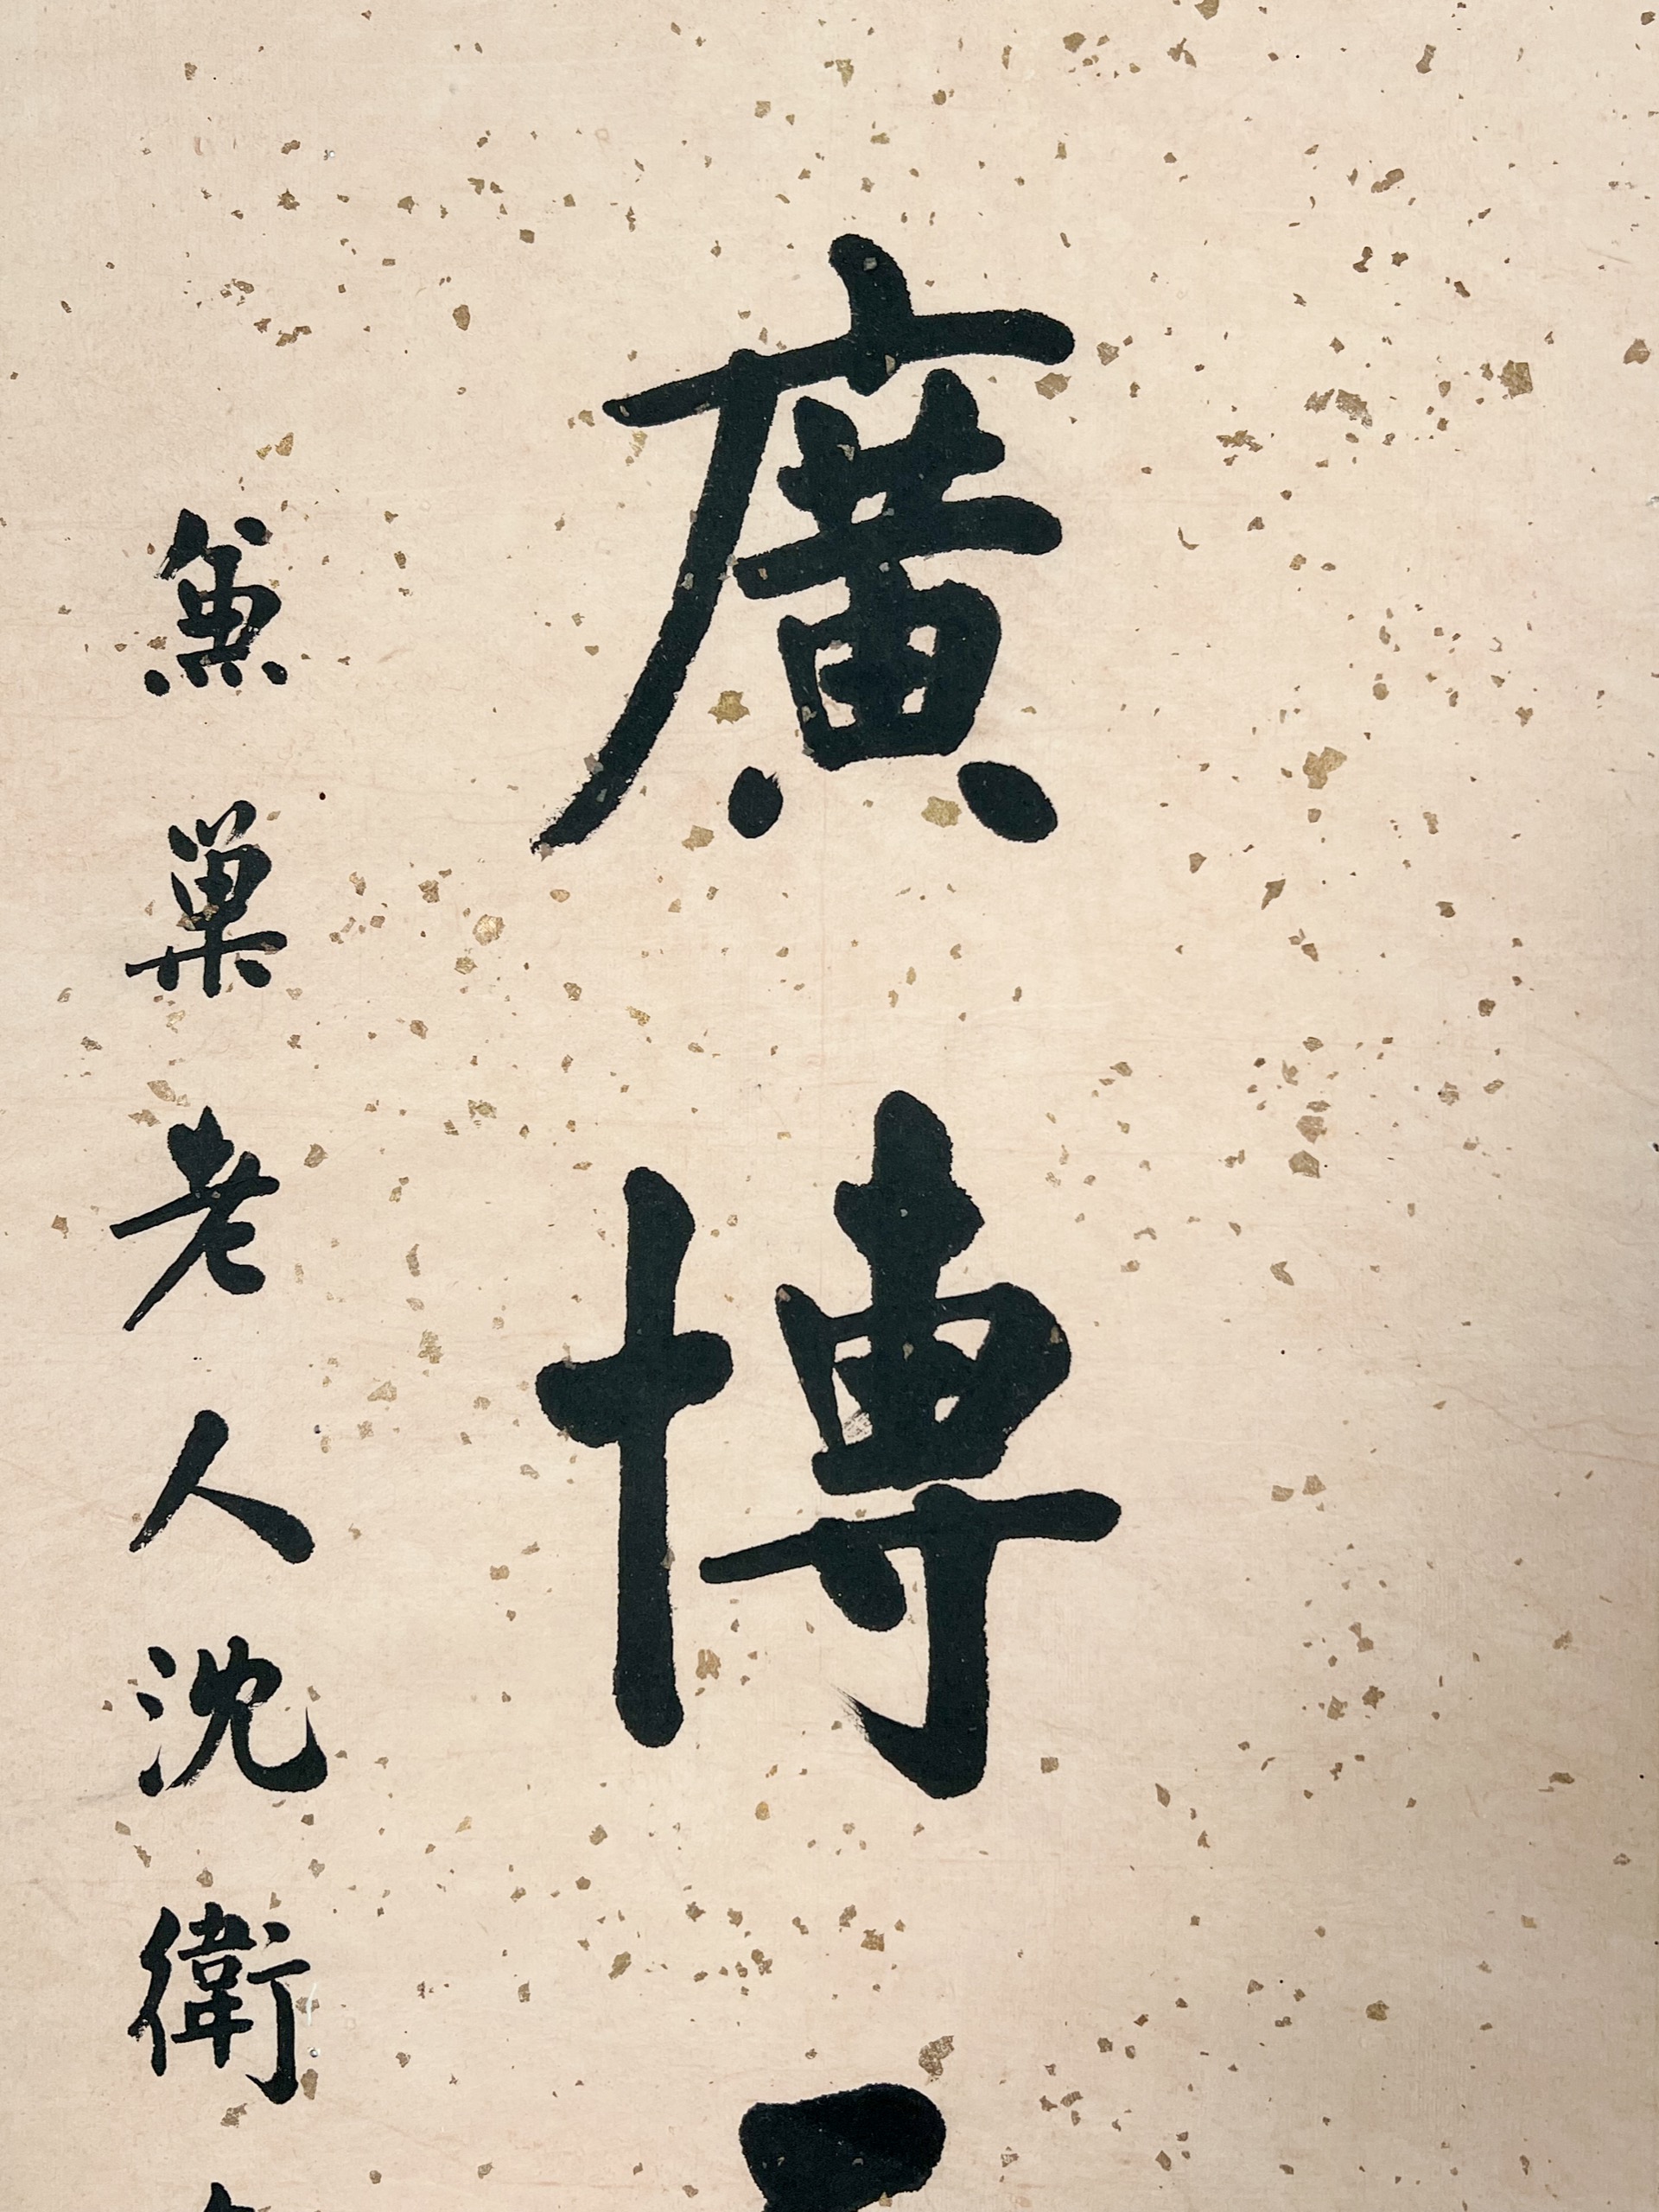 廣博
兼巢老人沈衛